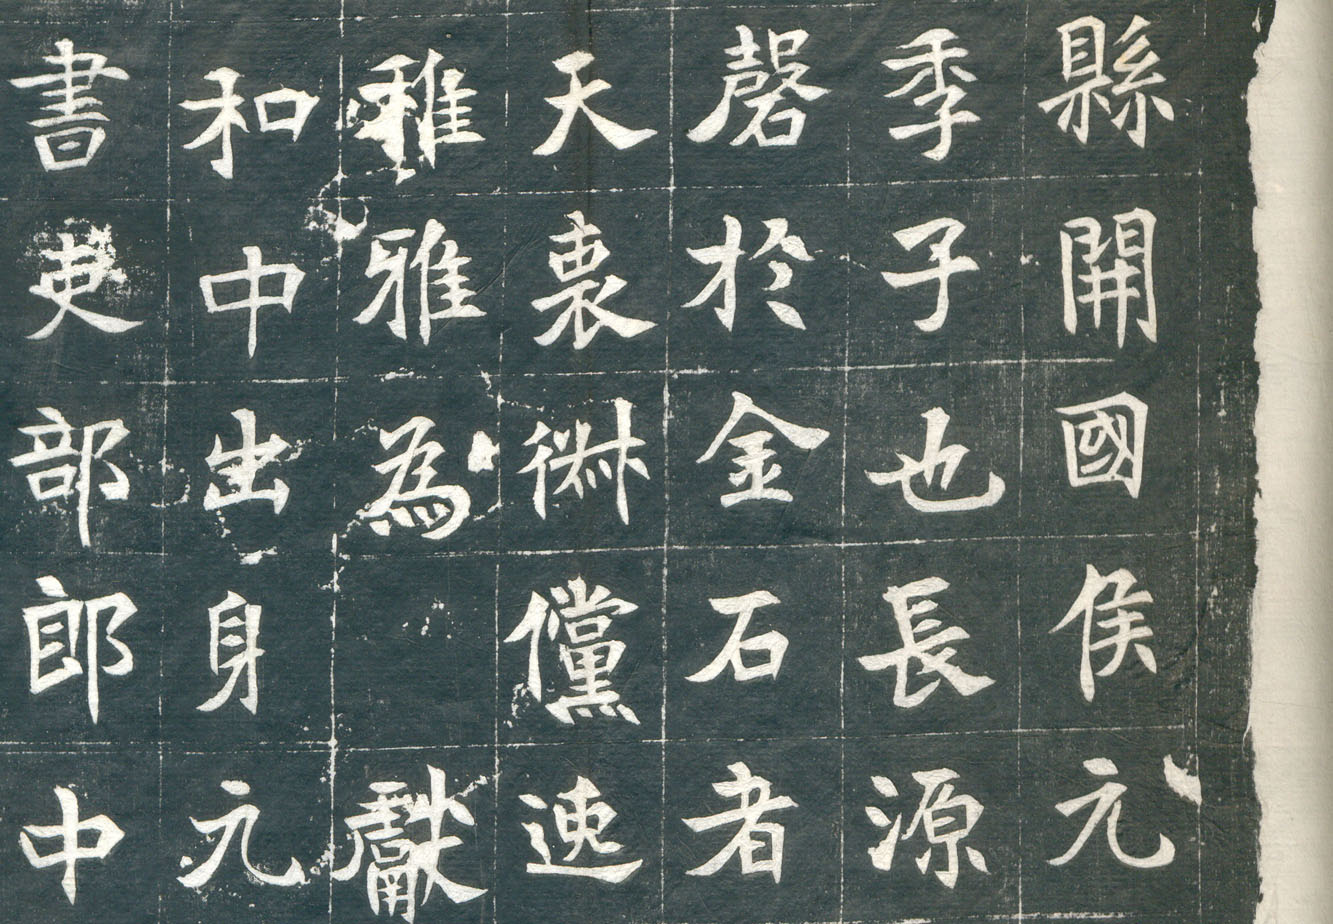 縣開國侯元
季子也長源
磬於金石者
天衷儻速
稚雅為獻
和中出身元
書吏部郎中